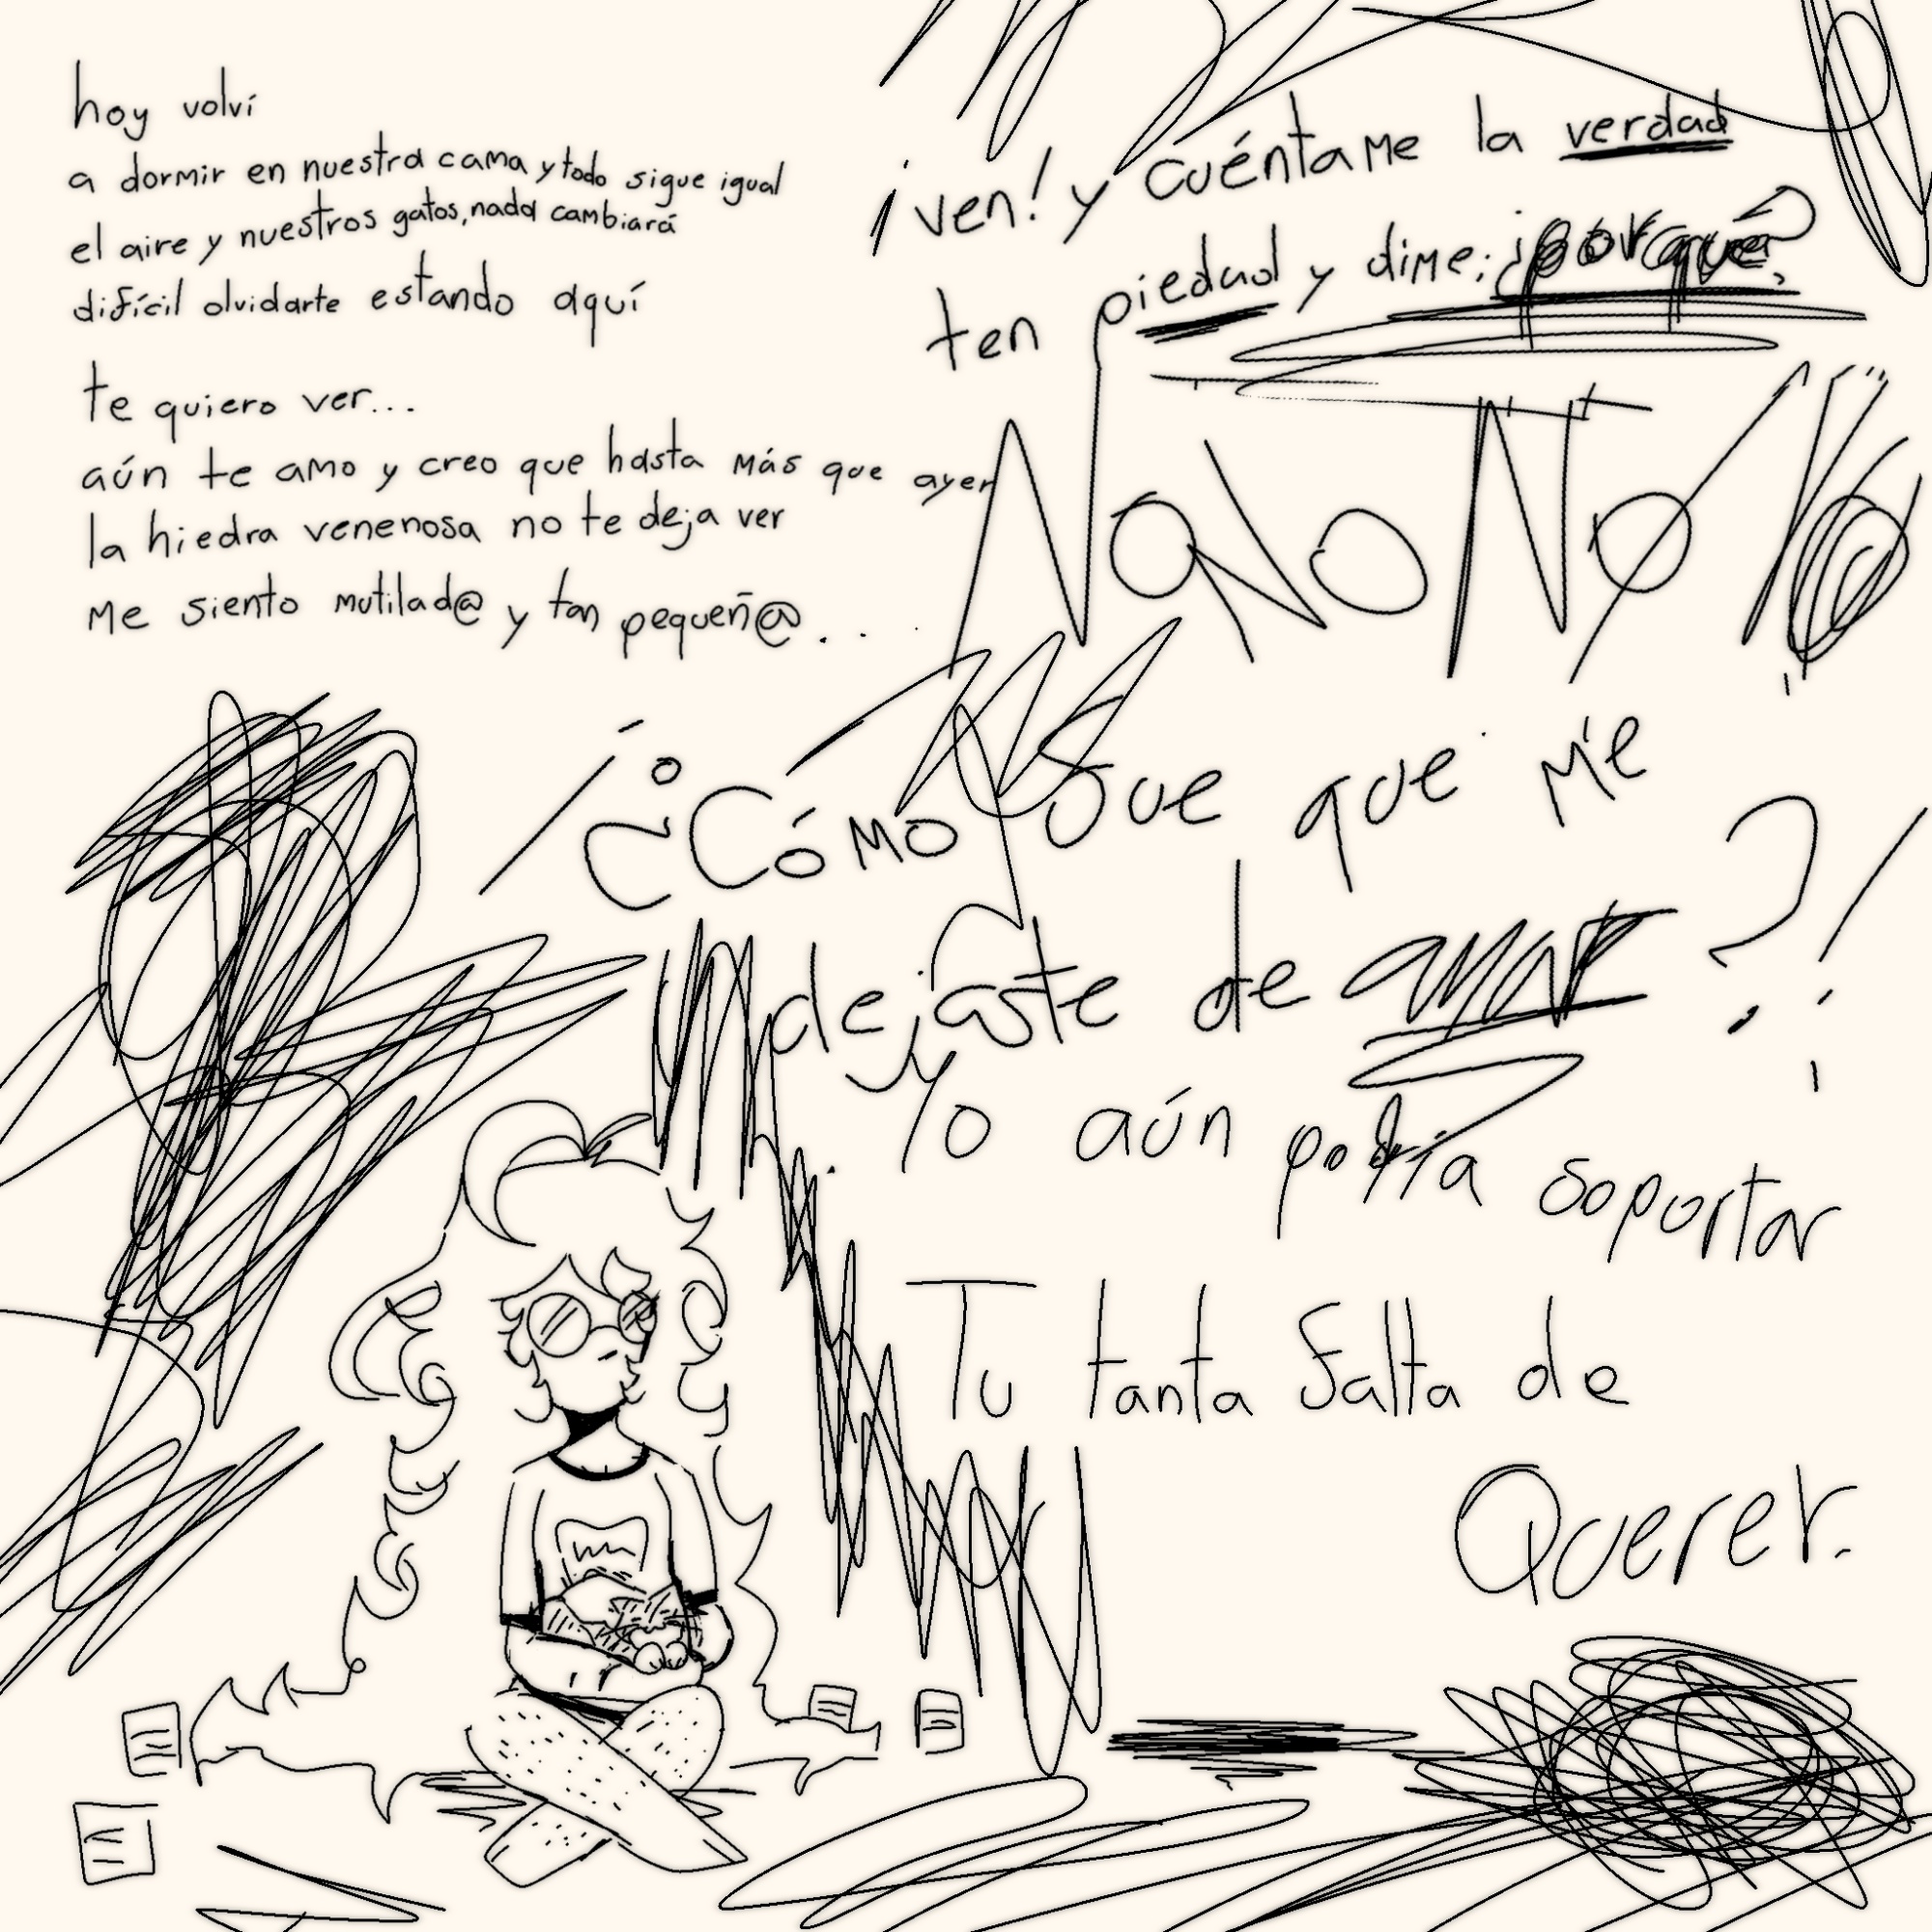 hoy volví
a dormir en nuestra cama y todo sigue igual
el aire y nuestros gatos, nada cambiará
difícil olvidarte estando aquí
te quiero ver...
aún te amo y creo que hasta más que ayer
la hiedra venenosa no te deja ver
me siento mutilad@ y tan pequeñ@...
¡ven! y cuéntame la verdad
ten piedad y dime; ¿por qué?
No No No No
¿Cómo fue que me
dejaste de amar?!
Yo aún podía soportar
Tu tanta falta de
Querer.